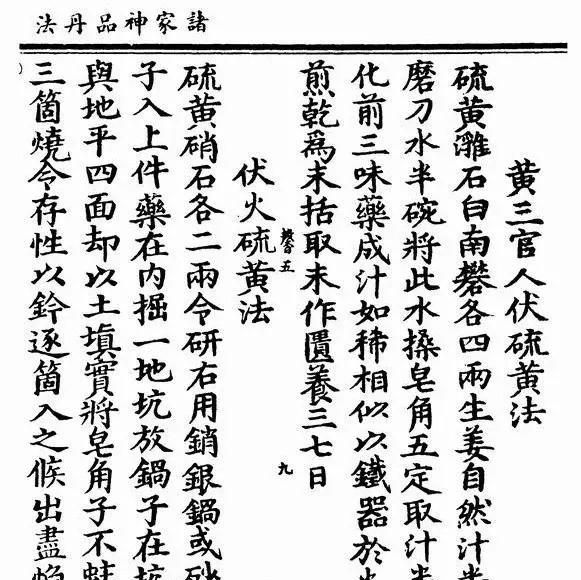 諸家神品丹法
黃三官人伏硫黃法
硫黃濰石白南礬各四兩生姜自然汁半
磨刀水半碗將此水搡皂角五定取汁半
化前三味藥成汁如稀相似以鐵器於火
煎乾爲末括取末作匱養三七日
五
九
伏火硫黃法
硫黃硝石各二兩令研右用銷銀鍋或砂
子入上件藥在內掘一地坑放鍋子在坑
與地平四面却以土填實將皂角子不蛀
三箇燒令存性以鈐逐箇入之候出盡焰